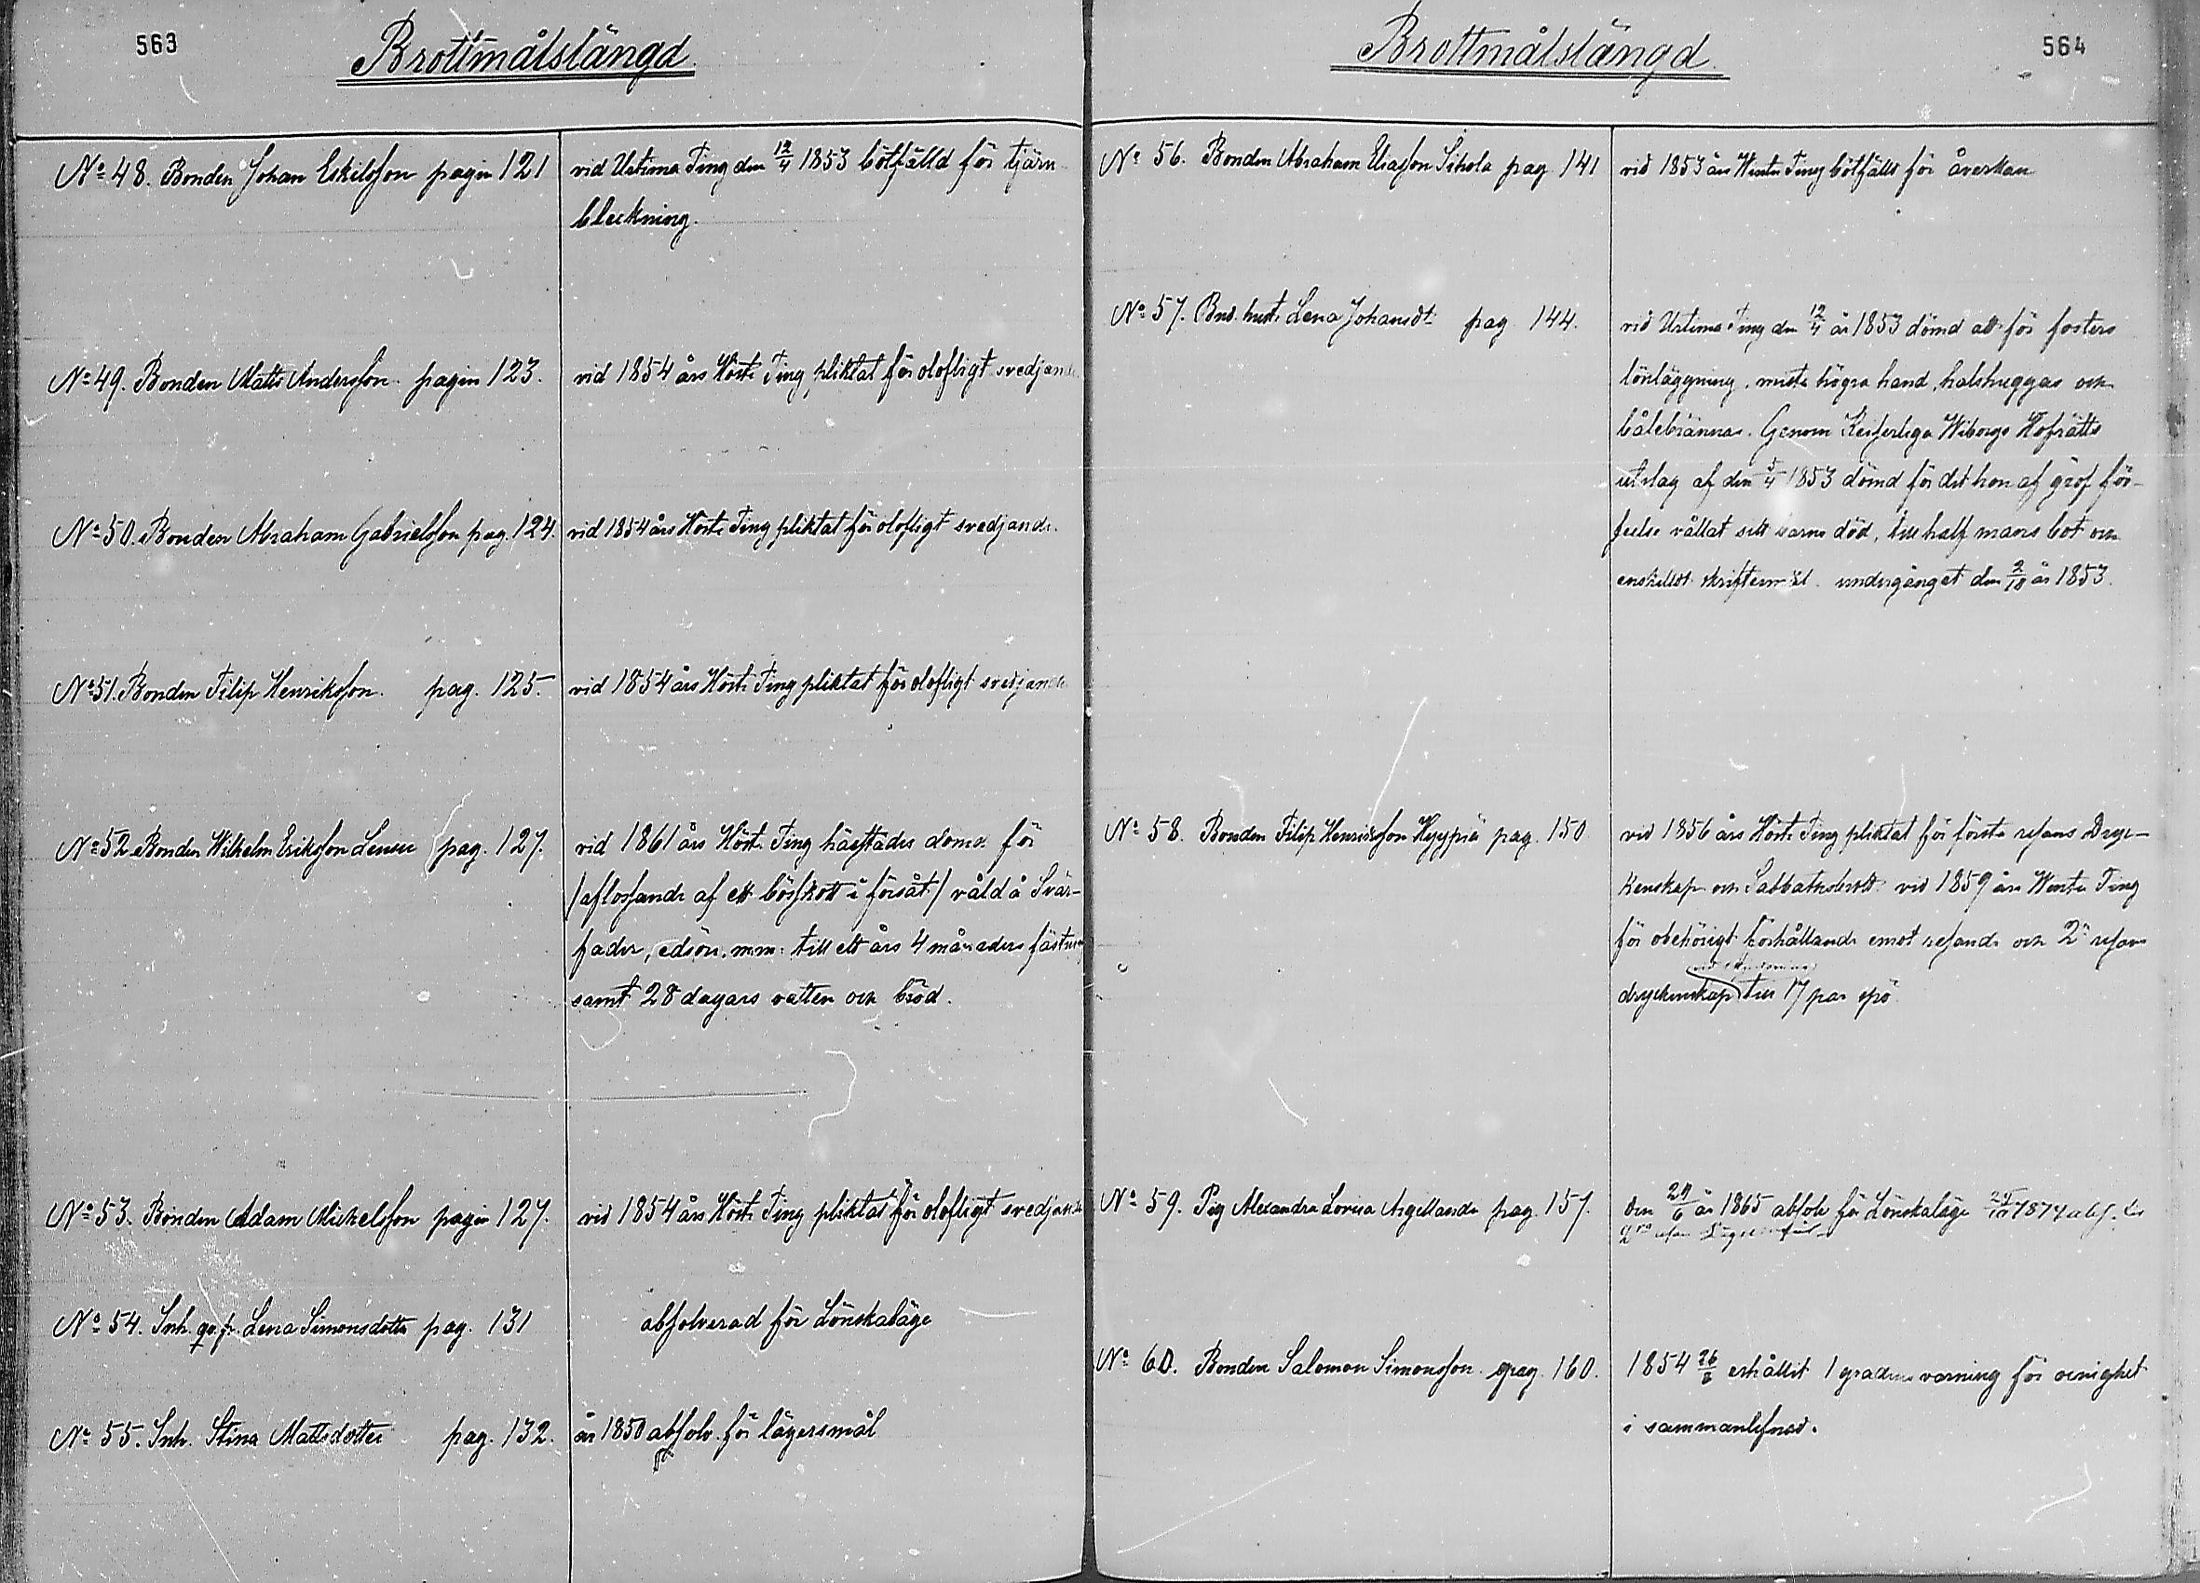 563
Brottmålslängd
No 48. Bonden Johan Eskilsson pagin 121
vid Urtima Ting den 12/4 1853 bötfälld för tjärn
bleckning.
No 49. Bonden Matts Andersson pagin 123.
vid 1854 års Höste Ting pliktat för olofligt svedjande
No 50. Bonden Abraham Gabrielsson pag. 124.
vid 1854 års Höste Ting pliktat för olofligt svedjande.
No 51. Bonden Filip Henriksson. pag. 125.
vid 1854 års Höste Ting pliktat för olofligt svedjande
No 52 Bonden Wilhelm Eriksson pag. 127.
vid 1861 års Höst Ting häktades dömd för
/aflossande af ett bösskott i försåt/ våld å Svär-
fader, edsör. m.m. till ett års 4 månaders fästning
samt 28 dagars vatten och bröd.
No 53. Bonden Adam Mickelsson pagin 127.
vid 1854 års Höste Ting pliktat för olofligt svedjande
No 54. Inh. qv.p. Lena Simonsdotter pag. 131
absolverad för Lönskaläge
No 55. Inh. Stina Mattsdotter pag. 132.
år 1850 absolv. för lägersmål
564
Brottmålslängd
No 56. Bonden Abraham Eliasson Sikola pag 141
vid 1853 års Winter Ting bötfälld för åverkan
No 57. Bnd. hust. Lena Johansdt pag. 144.
vid Urtima Ting den 12/4 år 1853 dömd att för fosters
lönläggning, mista högra hand, halshuggas och
bålebrännas. Genom Kejserliga Wiborgs Hofrätts
utslag af den 5/4 1853 dömd för det hon af grof för-
seelse vållat sitt barns död, till half mans bot och
enskildt skriftermål. undergånget den 2/10 år 1853.
No 58. Bonden Filip Henriksson Hyyppiä pag. 150
vid 1856 års Höste Ting pliktat för första resans Dryc-
kenskap och Sabbatsbrott. vid 1859 års Winter Ting
för obehörigt förhållande emot resande och 2a resan
dryckenskap till 17 par spö
No 59. Pig Alexandra Lovisa Argillander pag. 157.
Den 24/6 år 1865 absolv för Lönskaläge 1874 abs. för
2dra resan Lägersmål
No 60. Bonden Salomon Simonsson. pag. 160.
1854 26/8 erhållit 1 gradens varning för oenighet
i sammanlefnad.